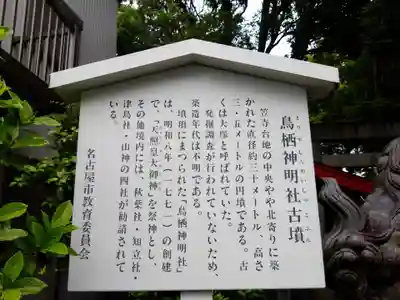 鳥栖神明社古墳
笠寺台地の中央やや北寄りに築
かれた直径約三十メートル、高さ
三・五メートルの円墳である。古
くは大塚と呼ばれていた。
発掘調査が行われていないため、
築造年代は不明である。
墳頂にまつられた「鳥栖神明社」
は、明和八年(一七七一)の創建
で、「天照皇大御神」を祭神とし、
その他境内には、秋葉社・知立社・
津島社・山神の四社が勧請されて
いる。
名古屋市教育委員会